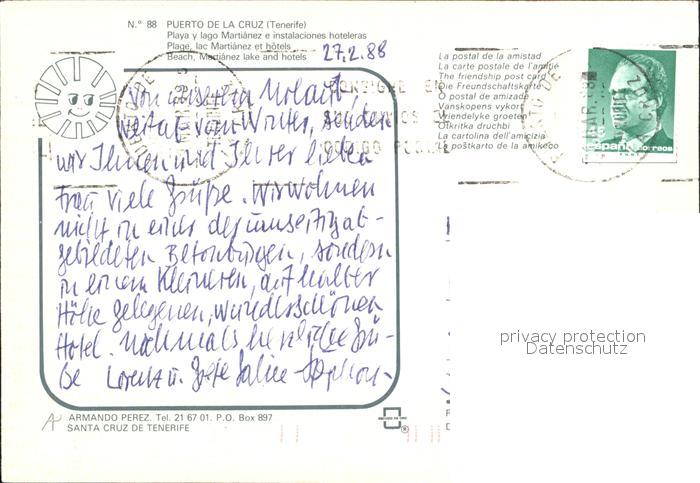 N.º 88 PUERTO DE LA CRUZ (Tenerife)
Playa y lago Martiánez e instalaciones hoteleras
Plage, lac Martiánez et hôtels
Beach, Martiánez lake and hotels
27.2.88
Von unserem Urlaub,
weitab vom Winter, senden
wir Ihnen und Ihrer lieben
Frau viele Grüße. Wir wohnen
nicht in einer der umseitig ab-
gebildeten Betonburgen, sondern
in einem kleineren, auf halber
Höhe gelegenen, wunderschönen
Hotel. Nochmals herzliche Grü-
ße Lorenz u.
La postal de la amistad
La carte postale de l'amitié
The friendship post card
Die Freundschaftskarte
O postal de amizade
Vanskopens vykort
Vriendelyke groeten
Otkritka druchbi
La cartolina dell'amicizia
La poŝtkarto de la amikeco
CONSIGNE EN
SUS ENVIOS EL
CODIGO POSTAL
PUERTO DE
españa correos
privacy protection
Datenschutz
ARMANDO PEREZ. Tel. 21 67 01. P.O. Box 897
SANTA CRUZ DE TENERIFE